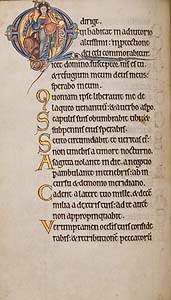 dirige.
Qui habitat in adiutorio
altissimi: in protectione
dei celi commorabitur.
Dicet domino susceptor meus es tu
& refugium meum deus meus
sperabo in eum.
Quoniam ipse liberauit me de
laqueo uenantium: & a uerbo aspero.
Scapulis suis obumbrabit tibi: &
sub pennis eius sperabis.
Scuto circumdabit te ueritas ei
non timebis a timore nocturno.
A sagitta uolante in die. a negocio
perambulante in tenebris: ab in
cursu & demonio meridiano.
Cadent a latere tuo mille. & decē
milia a dextris tuis: ad te autē
non appropinquabit.
Verumptamen oculis tuis conside
rabis: & retributionē peccatorū